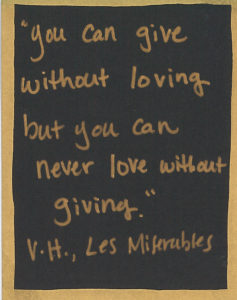 "you can give
without loving
but you can
never love without
giving."
V.H., Les Miserables